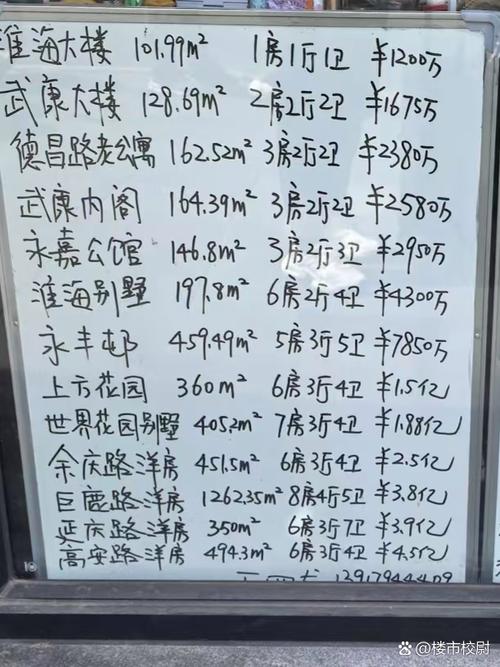 淮海大楼 101.99m² 1房1厅1卫 ¥1200万
武康大楼 128.69m² 2房2厅2卫 ¥1675万
德昌路老公寓 162.52m² 3房2厅2卫 ¥2380万
武康内阁 164.39m² 3房2厅2卫 ¥2580万
永嘉公馆 146.8m² 3房2厅3卫 ¥2950万
淮海别墅 197.8m² 6房2厅4卫 ¥4300万
永丰邨 459.49m² 5房3厅5卫 ¥7850万
上方花园 360m² 6房3厅4卫 ¥1.5亿
世界花园别墅 405.2m² 7房3厅4卫 ¥1.88亿
余庆路洋房 451.5m² 6房3厅4卫 ¥2.5亿
巨鹿路洋房 1262.35m² 8房4厅5卫 ¥3.8亿
延庆路洋房 350m² 6房3厅7卫 ¥3.9亿
高安路洋房 494.3m² 6房3厅4卫 ¥4.5亿
@楼市校尉